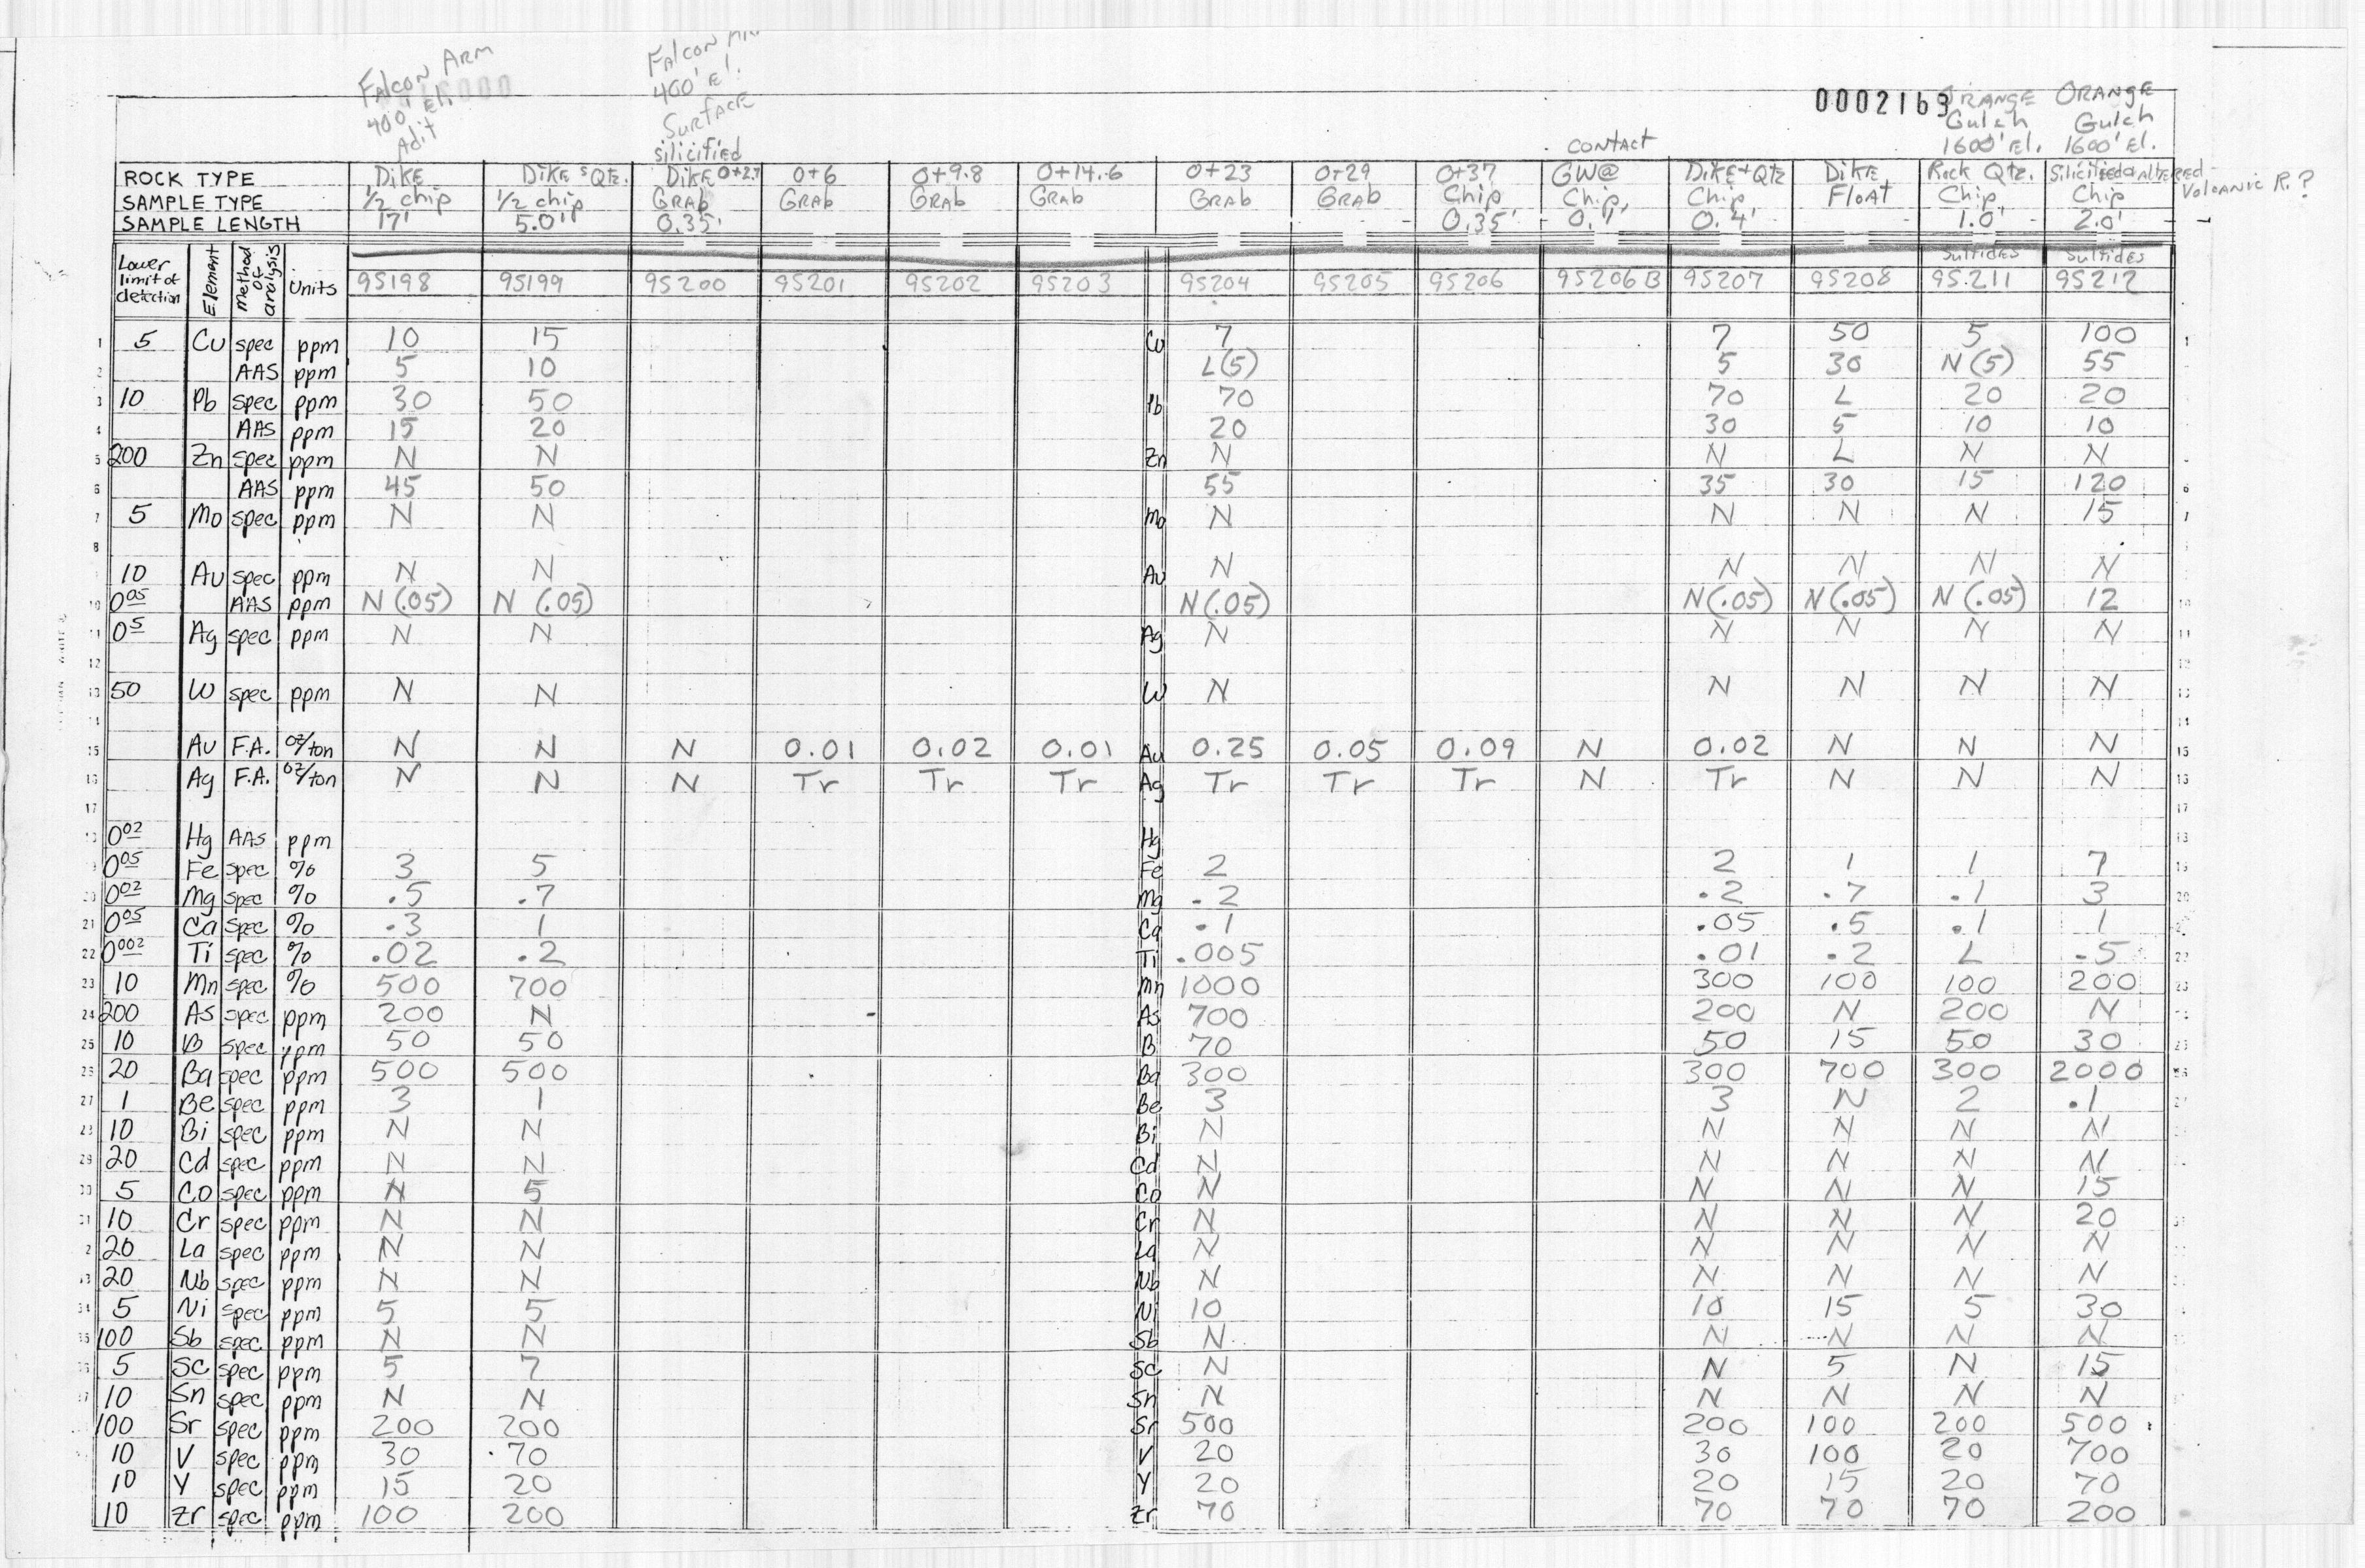 Falcon Arm
400' El.
Adit
Falcon
400' El.
Surface
0002169
Orange
Gulch
1600' El.
Orange
Gulch
1600' El.
silicified
contact
ROCK TYPE Dike Dike s Qtz. Dike 0+2.7 0+6 0+9.8 0+14.6 0+23 0+29 0+37 GW@ Dike+Qtz Dike Rock Qtz. Silicified altered
Volcanic R.?
SAMPLE TYPE 1/2 chip 1/2 chip Grab Grab Grab Grab Grab Grab Chip Chip, Chip, Float Chip Chip
SAMPLE LENGTH 17' 5.0' 0.35' 0.35' 0.1' 0.4' 1.0' 2.0'
Sulfides Sulfides
Lower limit of detection Element Method of analysis Units 95198 95199 95200 95201 95202 95203 95204 95205 95206 95206B 95207 95208 95211 95212
1 5 Cu spec ppm 10 15 Cu 7 7 50 5 100 1
2 AAS ppm 5 10 L(5) 5 30 N(5) 55
3 10 Pb spec ppm 30 50 Pb 70 70 L 20 20
4 AAS ppm 15 20 20 30 5 10 10
5 200 Zn spec ppm N N Zn N N L N N
6 AAS ppm 45 50 55 35 30 15 120 6
7 5 Mo spec ppm N N Mo N N N N 15 7
8
10 Au spec ppm N N Au N N N N N
10 0.05 AAS ppm N(.05) N(.05) N(.05) N(.05) N(.05) N(.05) 12 10
11 0.5 Ag spec ppm N N Ag N N N N N 11
12 12
13 50 W spec ppm N N W N N N N N 13
14 14
15 Au F.A. oz/ton N N N 0.01 0.02 0.01 Au 0.25 0.05 0.09 N 0.02 N N N 15
16 Ag F.A. oz/ton N N N Tr Tr Tr Ag Tr Tr Tr N Tr N N N 16
17 17
18 0.02 Hg AAS ppm Hg 18
19 0.05 Fe spec % 3 5 Fe 2 2 1 1 7 19
20 0.02 Mg spec % .5 .7 Mg .2 .2 .7 .1 3 20
21 0.05 Ca spec % .3 1 Ca .1 .05 .5 .1 1
22 0.002 Ti spec % .02 .2 Ti .005 .01 .2 L .5 22
23 10 Mn spec % 500 700 Mn 1000 300 100 100 200 23
24 200 As spec ppm 200 N As 700 200 N 200 N
25 10 B spec ppm 50 50 B 70 50 15 50 30 25
26 20 Ba spec ppm 500 500 Ba 300 300 700 300 2000 26
27 1 Be spec ppm 3 1 Be 3 3 N 2 .1
28 10 Bi spec ppm N N Bi N N N N N
29 20 Cd spec ppm N N Cd N N N N N
30 5 Co spec ppm N 5 Co N N N N 15
31 10 Cr spec ppm N N Cr N N N N 20
20 La spec ppm N N La N N N N N
33 20 Nb spec ppm N N Nb N N N N N
34 5 Ni spec ppm 5 5 Ni 10 10 15 5 30
35 100 Sb spec ppm N N Sb N N N N N
36 5 Sc spec ppm 5 7 Sc N N 5 N 15
37 10 Sn spec ppm N N Sn N N N N N
100 Sr spec ppm 200 200 Sr 500 200 100 200 500
10 V spec ppm 30 70 V 20 30 100 20 700
10 Y spec ppm 15 20 Y 20 20 15 20 70
10 Zr spec ppm 100 200 Zr 70 70 70 70 200